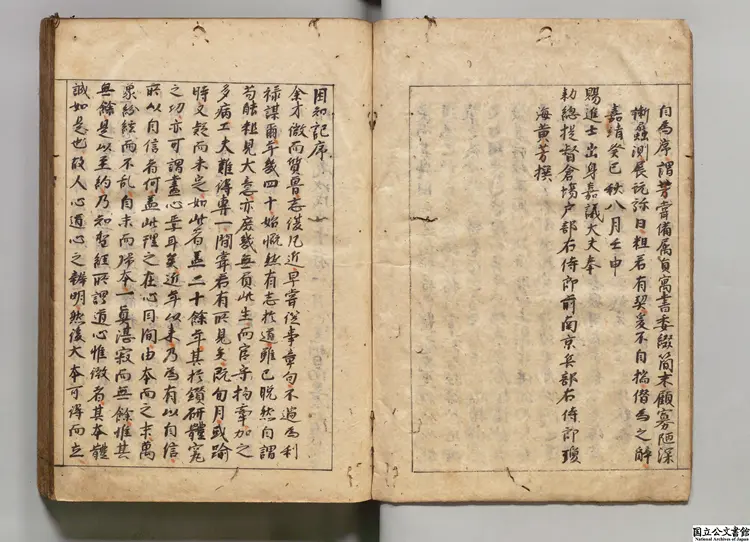 自為序謂芳嘗備属員寓書委綴簡末顧寡陋深
慚蠡測展玩弥日粗若有契爰不自揣僣為之解
嘉靖癸巳秋八月壬申
賜進士出身嘉議大夫奉
勅總提督倉場户部右侍郎前南京兵部右侍郎瓊
海黄芳撰
困知記序
余才微而質魯志復凡近早嘗從事章句不過為利
禄謀爾年幾四十始慨然有志扵道雖已晩然自謂
苟能粗見大意亦庶幾無負此生而官守拘牽加之
多病工夫難得專一間嘗若有所見矣既旬月或踰
時又疑而未定如此者盖二十餘年其扵鑚研體究
之功亦可謂盡心焉耳矣近年以来乃為有以自信
所以自信者何盖此理之在心目間由本而之末萬
象紛紜而不乱自末而歸本一真湛寂而無餘惟其
無餘是以至約乃知聖經所謂道心惟微者其本體
誠如是也故人心道心之辨明然後大本可得而立
国立公文書館
National Archives of Japan